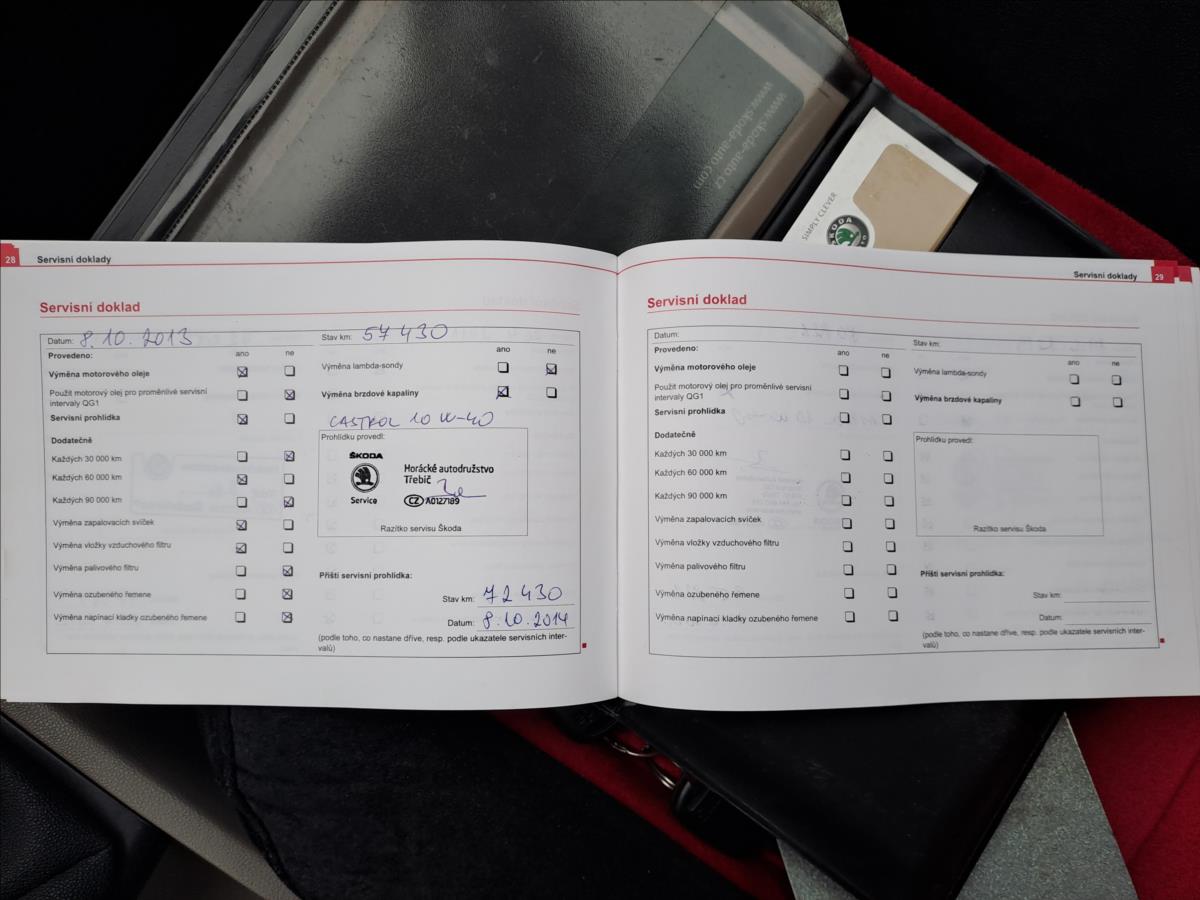 www.skoda-auto.cz
www.skoda-auto.com
SIMPLY CLEVER
SKODA
28 Servisní doklady
Servisní doklad
Datum: 8.10.2013
Stav km: 57 430
Provedeno:
ano ne
ano ne
Výměna motorového oleje
Použit motorový olej pro proměnlivé servisní
intervaly QG1
Servisní prohlídka
Dodatečně
Každých 30 000 km
Každých 60 000 km
Každých 90 000 km
Výměna zapalovacích svíček
Výměna vložky vzduchového filtru
Výměna palivového filtru
Výměna ozubeného řemene
Výměna napínací kladky ozubeného řemene
Výměna lambda-sondy
Výměna brzdové kapaliny
CASTROL 10W-40
Prohlídku provedl:
ŠKODA
Service
Horácké autodružstvo
Třebíč
CZ A0127189
Razítko servisu Škoda
Příští servisní prohlídka:
Stav km: 72 430
Datum: 8.10.2014
(podle toho, co nastane dříve, resp. podle ukazatele servisních inter-
valů)
Servisní doklady 29
Servisní doklad
Datum:
Stav km:
Provedeno:
ano ne
ano ne
Výměna motorového oleje
Použit motorový olej pro proměnlivé servisní
intervaly QG1
Servisní prohlídka
Dodatečně
Každých 30 000 km
Každých 60 000 km
Každých 90 000 km
Výměna zapalovacích svíček
Výměna vložky vzduchového filtru
Výměna palivového filtru
Výměna ozubeného řemene
Výměna napínací kladky ozubeného řemene
Výměna lambda-sondy
Výměna brzdové kapaliny
Prohlídku provedl:
Razítko servisu Škoda
Příští servisní prohlídka:
Stav km:
Datum:
(podle toho, co nastane dříve, resp. podle ukazatele servisních inter-
valů)